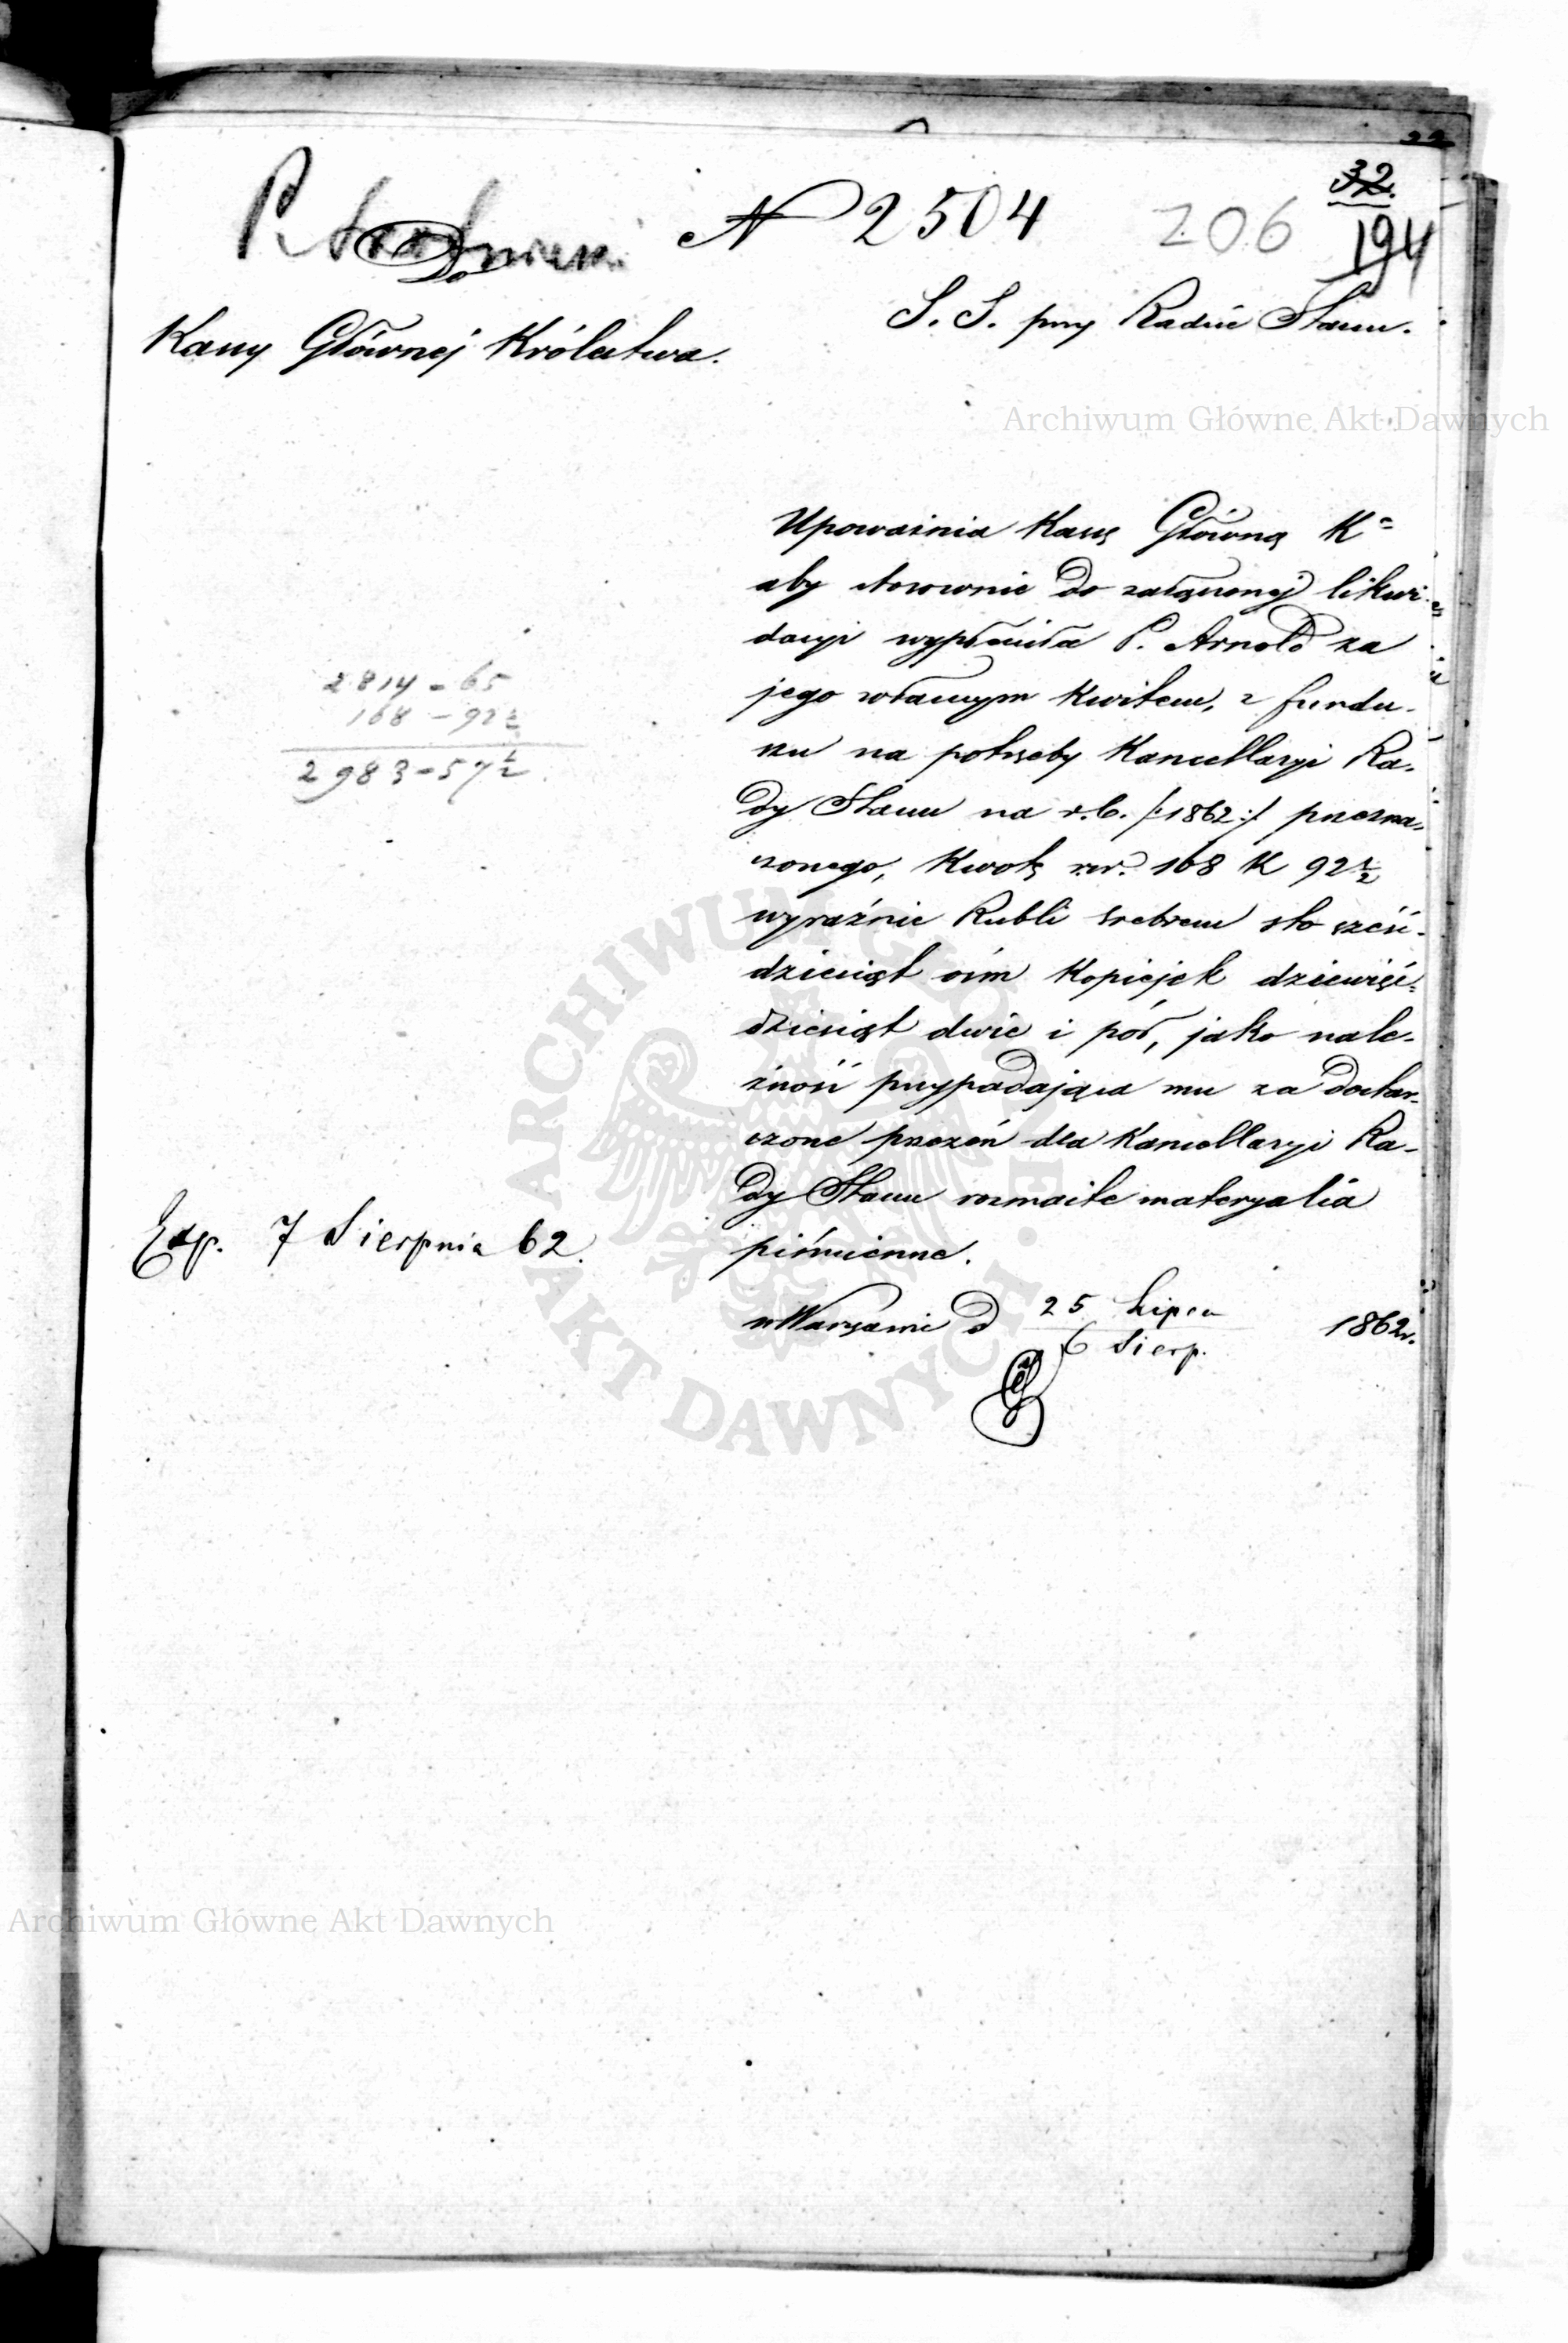 32.
N 2504
206
194
Do
Kassy Głównej Królestwa.
S. S. przy Radzie Stanu.
Archiwum Główne Akt Dawnych
Upoważnia Kassę Główną K
aby stosownie do załączonej likwi-
dacyi wypłaciła P. Arnold za
jego własnym kwitem, z fundu-
szu na potrzeby Kancellaryi Ra-
dy Stanu na r. b. /:1862:/ przezna-
czonego, kwotę rsr. 168 k 92 1/2
wyraźnie Rubli srebrem sto sześć-
dziesiąt ośm kopiejek dziewięć-
dziesiąt dwie i pół, jako nale-
żność przypadająca mu za dostar-
czone przezeń dla Kancellaryi Ra-
dy Stanu rozmaite materyalia
piśmienne.
w Warszawie d 25 Lipca / 6 Sierp. 1862 r.
2814 - 65
168 - 92 1/2
2983 - 57 1/2
Exp. 7 Sierpnia 62.
ARCHIWUM GŁÓWNE AKT DAWNYCH
Archiwum Główne Akt Dawnych